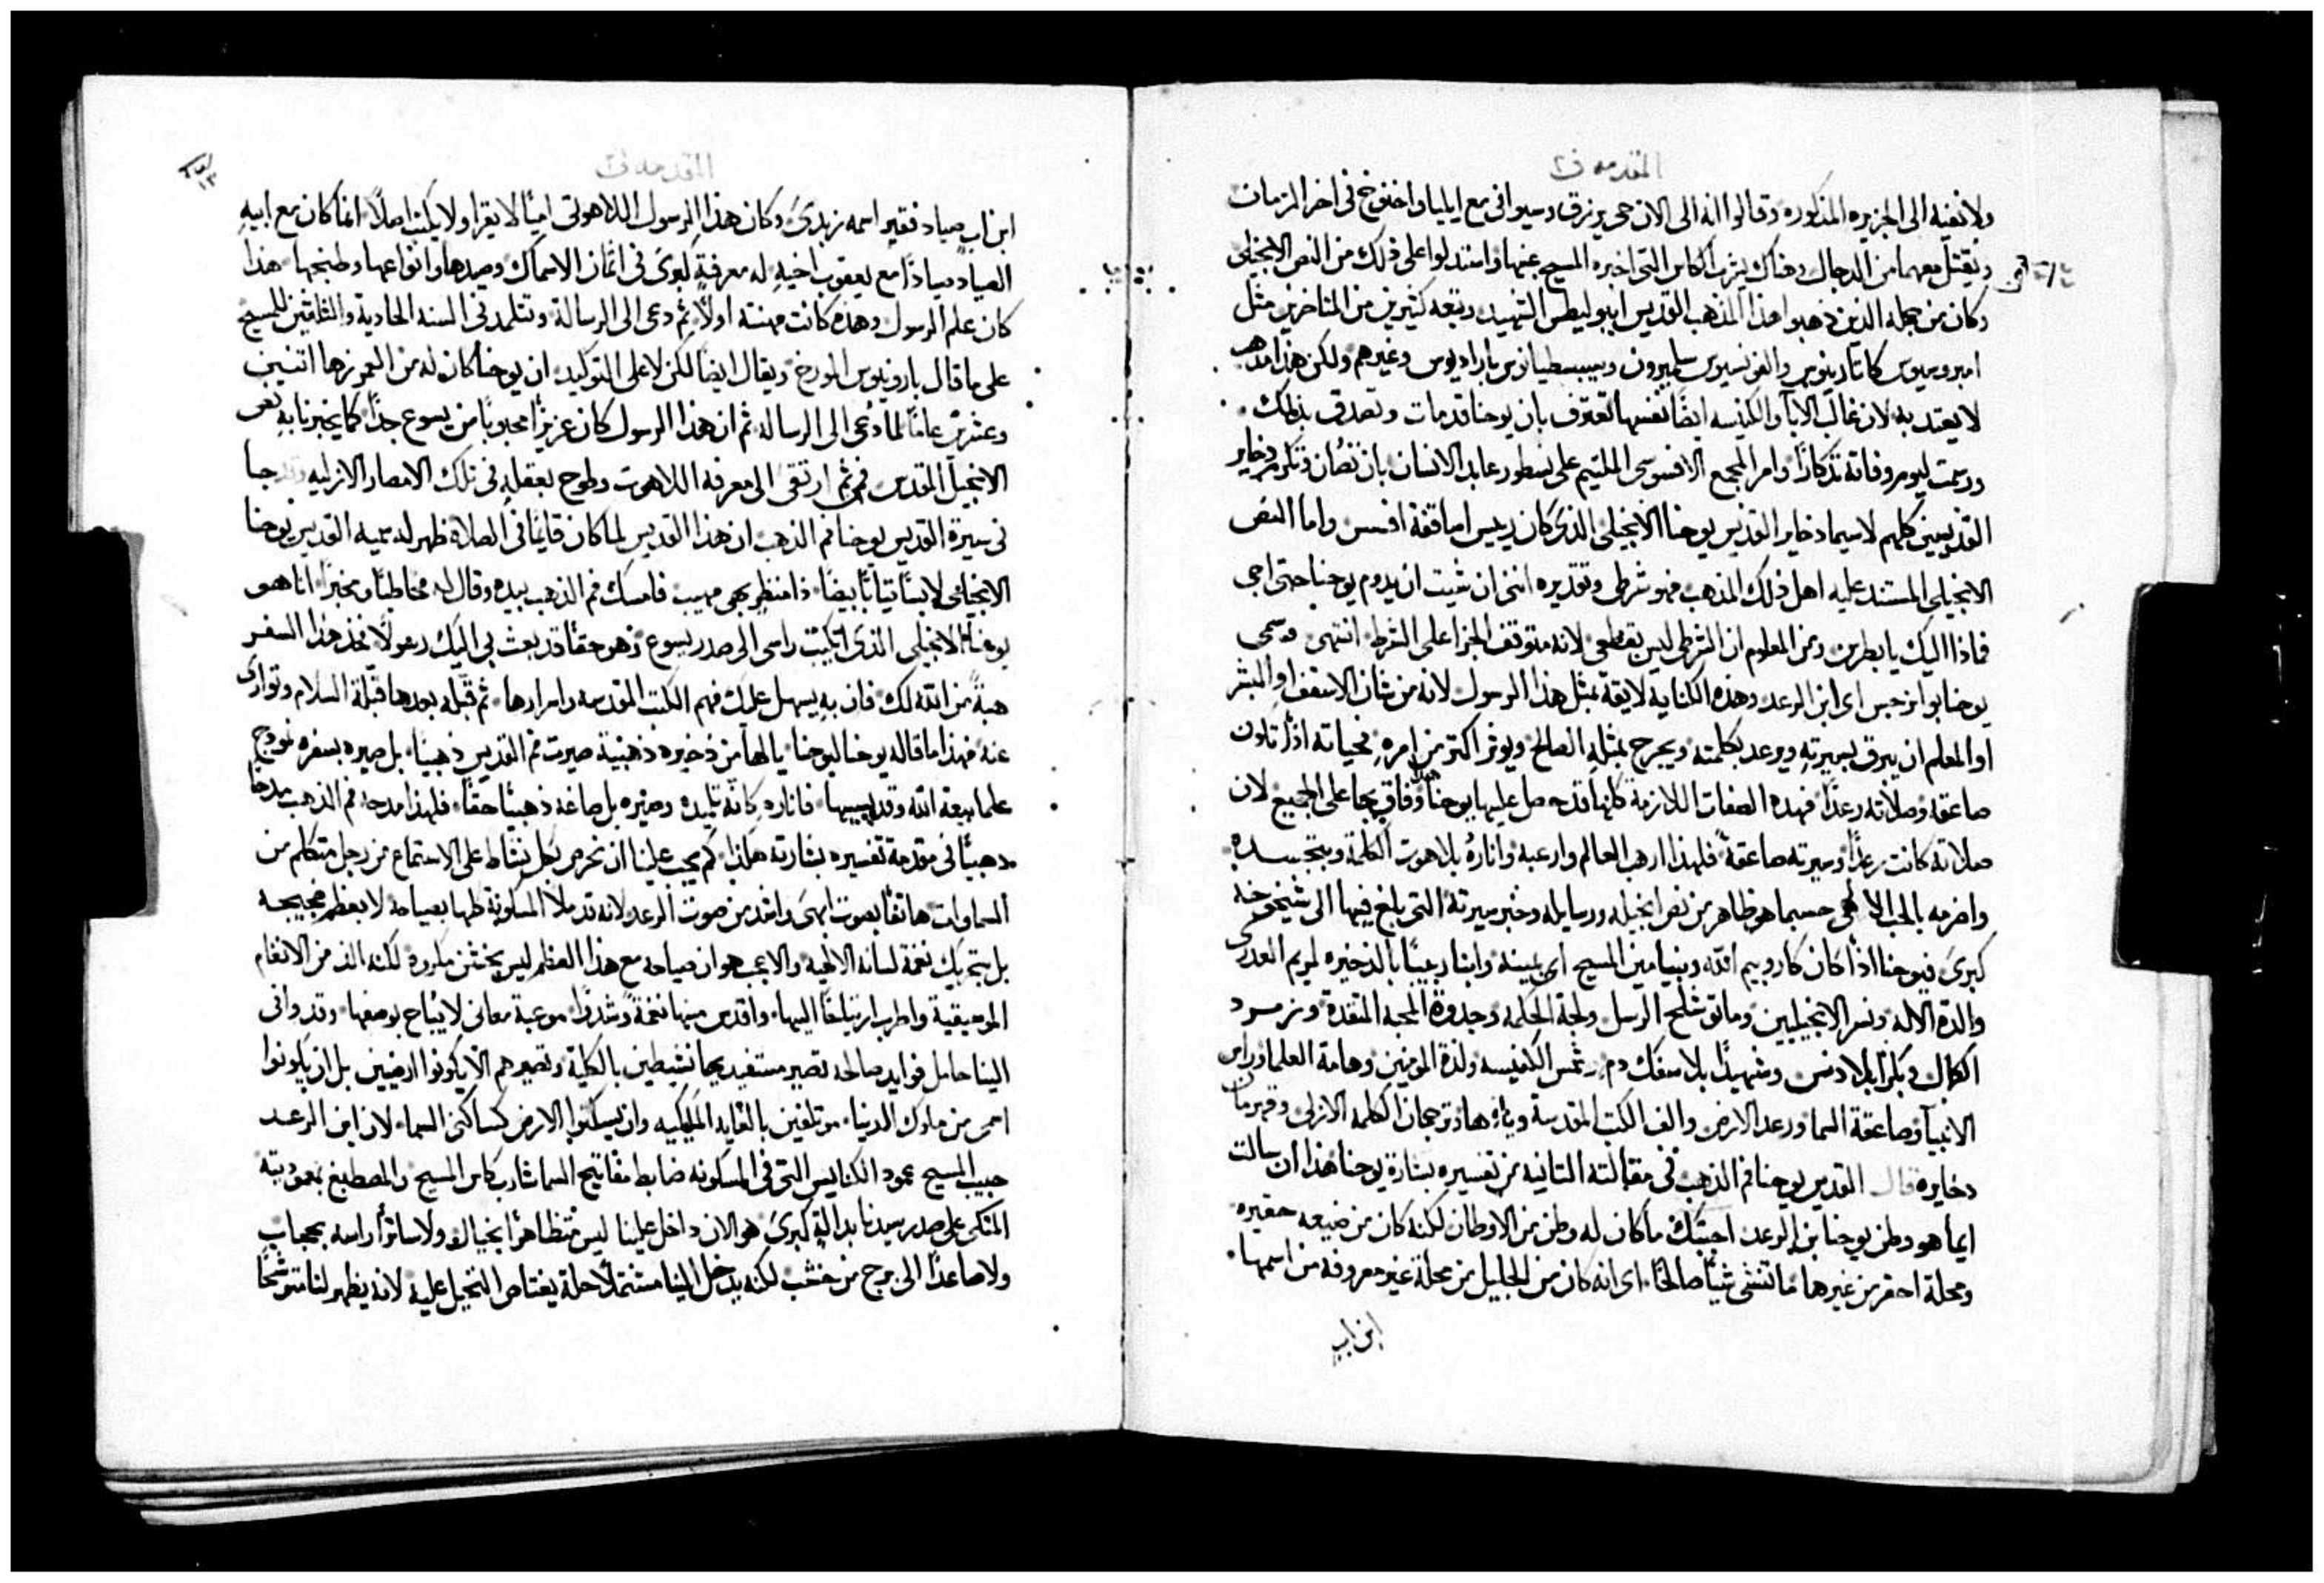 المقدمه ف٢
ولا نفيه الى الجزيره المذكوره وقالوا انه الى الان حى يرزق وسيوافى مع ايليا واخنوخ فى اخر الزمان
ويقتل معهما من الدجال وهناك يشرب الكاس التى اخبره المسيح عنها واستدلوا على ذلك من النص الانجيلى
وكان من جمله الذين ذهبوا هذا المذهب القديس ايبوليطس الشهيد وتبعه كثيرين من المتاخرين مثل
امبروسيوس كاتارينوس والفونسيوس سلميرون وسيبسطيانوس باراديوس وغيرهم ولكن هذا مذهب
لا يعتد به لان غالب الابآ والكنيسه ايضًا نفسها تعترف بان يوحنا قد مات وتصدق بذلك
ورسمت ليوم وفاته تذكارًا وامر المجمع الافسوسى الملتيم على نسطور عابد الانسان بان تصان وتكرم ذخاير
القديسين كلهم لا سيما ذخاير القديس يوحنا الانجيلى الذى كان رييس اساقفة افسس واما النص
الانجيلى المستند عليه اهل ذلك المذهب فهو شرطى وتقديره اننى ان شيت ان يدوم يوحنا حتى اجى
فماذا اليك يا بطرس ومن المعلوم ان الشرطى ليس بقطعى لانه متوقف الجزا على الشرط انتهى وسمى
يوحنا بوانرجس اى ابن الرعد وهذه الكنايه لايقة بمثل هذا الرسول لانه من شان الاسقف او المبشر
او المعلم ان يبرق بسيرته ويرعد بكلمته ويحرج بمثله الصالح ويوثر اكثر من امره فحياته اذًا تكون
صاعقه وصلاته رعدًا فهذه الصفات اللازمة كلها قد حصل عليها يوحنا هذا وفاق بها على الجميع لان
صلاته كانت رعدًا وسيرته صاعقةً فلهذا ارهب العالم وارعبه واناره بلاهوت الكلمة وبتجسده
واضرمه بالحب الالهى حسبما هو ظاهر من نص انجيله ورسايله وخبر سيرته التى بلغ فيها الى شيخوخه
كبرى فيوحنا اذًا كان كاروبيم الله وبنيامين المسيح اى يمينه وابنا ربيبًا بالذخيره لمريم العدرى
والدة الاله ونسر الانجيليين وماتوشلح الرسل ولجة الحكمه وجدوة المحبه المتقدة وزمرد
الكمال وبكرًا بلا دنس وشهيدًا بلا سفك دم وشمس الكنيسه ولذة المومنين وهامة العلما وراس
الانبيآ وصاعقة السما ورعد الارض والف الكتب المقدسة وياءها وترجمان الكلمه الازلى وقهرمان
دخايره قال القديس يوحنا فم الذهب فى مقالته التانيه من تفسيره بشارة يوحنا هذا ان سالت
ايما هو وطن يوحنا بن الرعد اجبتك ما كان له وطن من الاوطان لكنه كان من ضيعه حقيره
ومحلة احقر من غيرها ما تنشى شيًا صالحًا اى انه كان من الجليل من محلة غير معروفه من اسمها
ابن اب
المقدمه ف٢
ابن اب صياد فقير اسمه زبدى وكان هذا الرسول اللاهوتى اميًا لا يقرا ولا يكتب اصلًا انما كان مع ابيه
الصياد صيادًا مع يعقوب اخيه له معرفة لغوى فى اثمان الاسماك وصيدها وانواعها وطبخها هذا
كان علم الرسول وهذه كانت مهنته اولًا ثم دعى الى الرسالة وتتلمد فى السنه الحادية والثلثين للمسيح
على ما قال بارونيوس المورخ ويقال ايضا لكن لا على التوكيد ان يوحنا كان له من العمر زها اتنين
وعشرين عامًا لما دعى الى الرساله ثم ان هذا الرسول كان عزيزًا محبوبًا من يسوع جدًا كما يخبرنا به نص
الانجيل المقدس فمن ثم ارتقى الى معرفه اللاهوت وطوح بعقله فى تلك الامصار الازليه وقد جا
فى سيرة القديس يوحنا فم الذهب ان هذا القديس لما كان قايمًا فى الصلاة ظهر له سميه القديس يوحنا
الانجيلى لابسًا ثيابًا بيضًا ذا منظر بهى مهيب فامسك فم الذهب بيده وقال له مخاطبًا ومخبرًا انا هو
يوحنا الانجيلى الذى اتكيت راسى الى صدر يسوع وهو حقًا قد بعث بى اليك رسولًا فخذ هذا السفر
هبةً من الله لك فان به يسهل عليك فهم الكتب المقدسه واسرارها ثم قبّله بعدها قبلة السلام وتوارى
عنه فهذا ما قاله يوحنا ليوحنا يا لها من ذخيره ذهنيّة صيرت فم القديس ذهبيًا بل صيره بسفره نموذج
علما بيعة الله وقديسيها فاناره كانّه تلميده وصيره بل صاغه ذهبيًا حقًا فلهذا مدحه فم الذهب مدحًا
ذهبيًا فى مقدمة تفسيره بشارته هكذا كم يجب علينا ان نحرص بكل نشاط على الاستماع من رجل متكلم من
السماوات هاتفًا بصوت ابهى واشد من صوت الرعد لانه قد ملا المسكونة كلها بصياحه لا بعظم ضجيجه
بل بتحريك نغمة لسانه الالهية والاعجب هو ان صياحه مع هذا العظم ليس بخشن مكروه لكنه الذ من الانغام
الموسيقية واطرب ارتياحًا اليها واقدس منها نغمةً وشدوًا موعبة معانى لا يباح بوصفها وقد وافى
الينا حامل فوايد صالحه تصير مستفيديها نشيطين بالكلية وتصيرهم الّا يكونوا ارضيين بل ان يكونوا
اسمى من ملوك الدنيا موتلفين بالغايه الملكيه وان يسكنوا الارض كساكنى السما لان ابن الرعد
حبيب المسيح عمود الكنايس التى فى المسكونه ضابط مفاتيح السما شارب كاس المسيح والمصطبغ بمعموديته
المتكى على صدر سيدنا بدالة كبرى هو الان داخل علينا ليس متظاهرًا بخيال ولا ساترًا راسه بحجاب
ولا صاعدًا الى برج من خشب لكنه يدخل الينا مشتملًا حلة يعتاص التخيل عليه لانه يظهر لنا متوشحًا